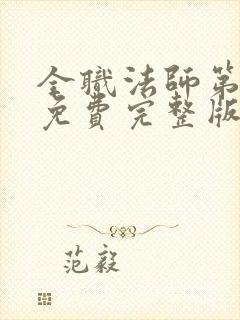 全職法師第
免費完整版
范毅